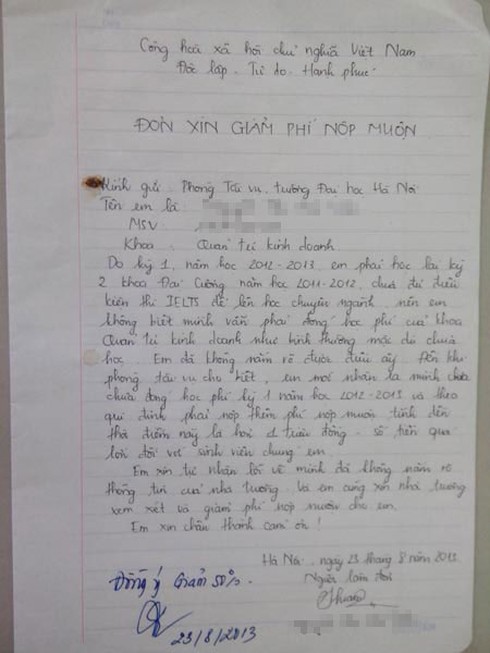 Cộng hoà xã hội chủ nghĩa Việt Nam
Độc lập - Tự do - Hạnh phúc
ĐƠN XIN GIẢM PHÍ NỘP MUỘN
Kính gửi : Phòng Tài vụ, trường Đại học Hà Nội
Tên em là :
MSV :
Khoa : Quản trị kinh doanh
Do kỳ 1, năm học 2012-2013, em phải học lại kỳ
2 khoa Đại Cương năm học 2011-2012, chưa đủ điều
kiện thi IELTS để lên học chuyên ngành, nên em
không biết mình vẫn phải đóng học phí của khoa
Quản trị kinh doanh như bình thường mặc dù chưa
học. Em đã không nắm rõ được điều ấy. Đến khi
phòng tài vụ cho biết, em mới nhận ra mình
chưa đóng học phí kỳ 1 năm học 2012-2013 và theo
qui định phải nộp thêm phí nộp muộn tính đến
thời điểm này là hơn 1 triệu đồng - số tiền quá
lớn đối với sinh viên chúng em.
Em xin tự nhận lỗi về mình đã không nắm rõ
thông tin của nhà trường. Và em cũng xin nhà trường
xem xét và giảm phí nộp muộn cho em.
Em xin chân thành cảm ơn !
Hà Nội, ngày 23 tháng 8 năm 2013
Người làm đơn
Đồng ý Giảm 50%.
23/8/2013